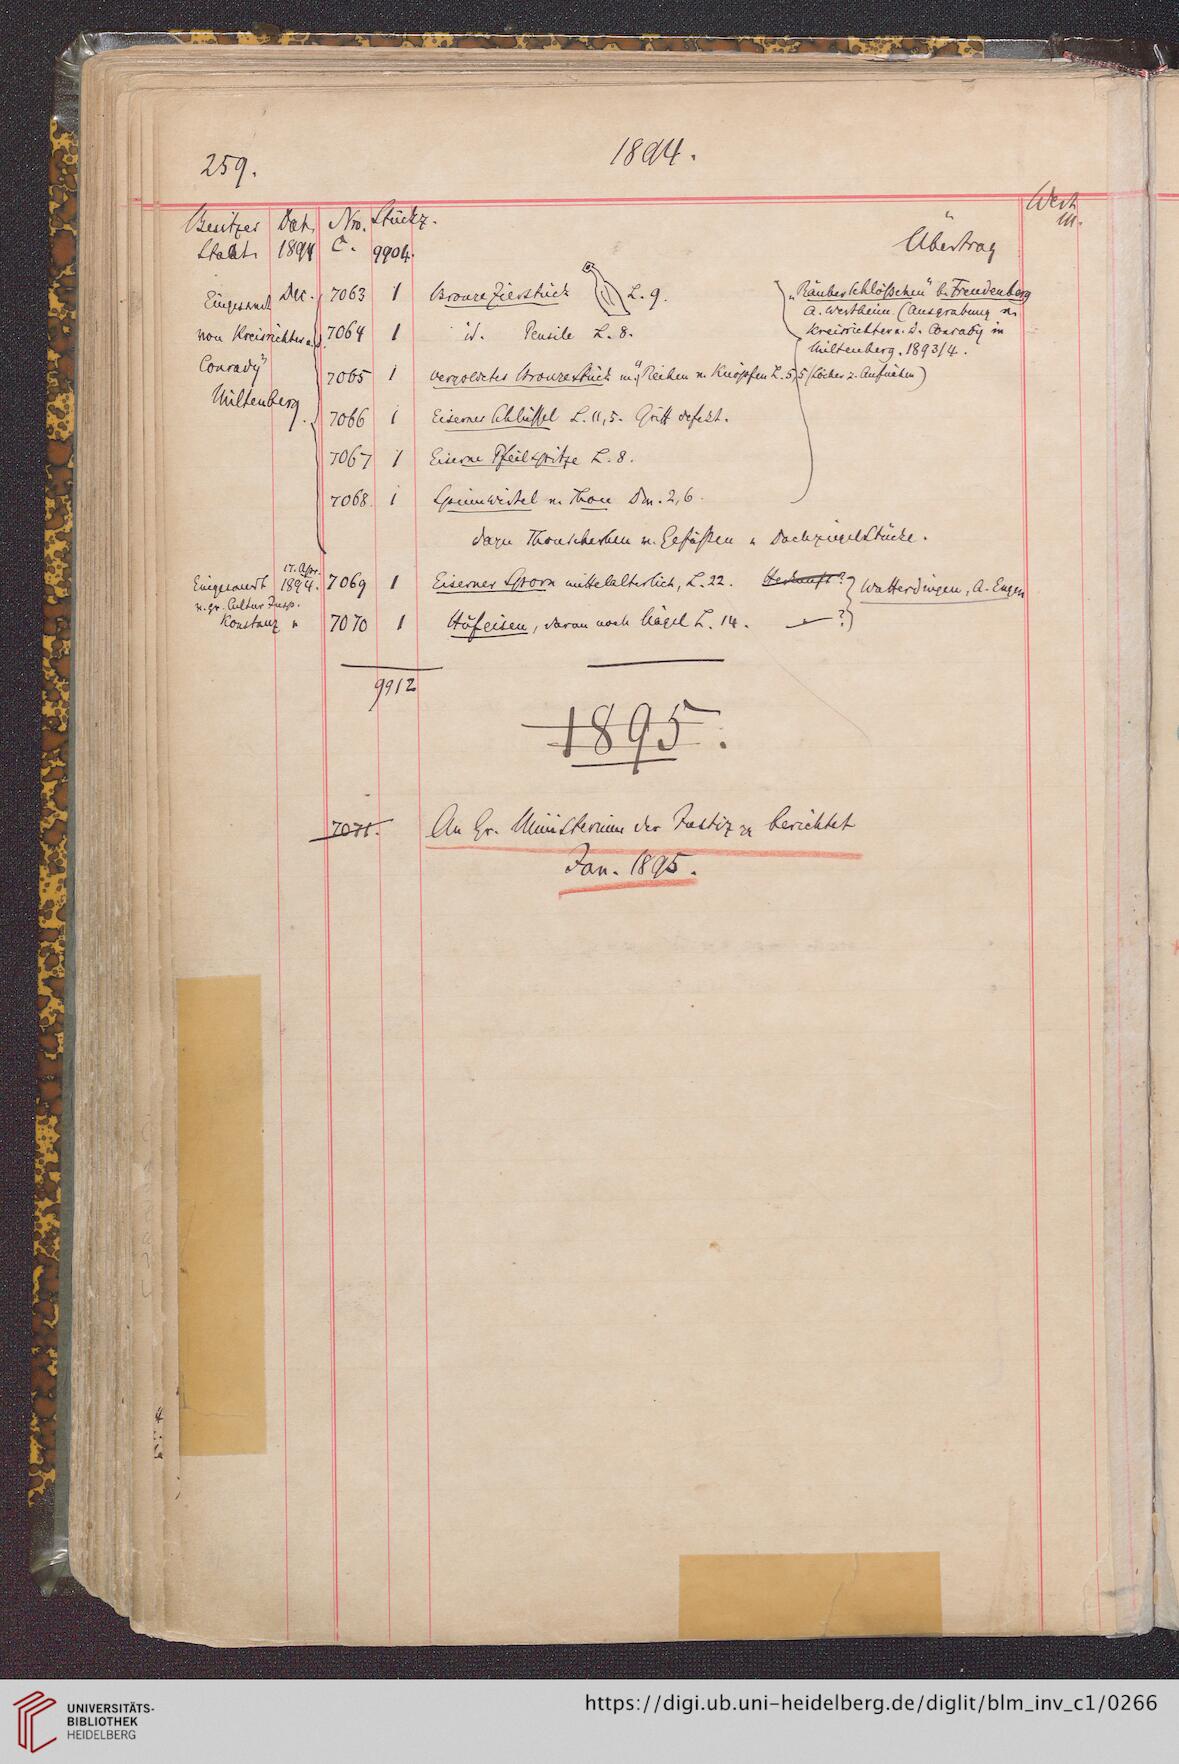 259.
1894.
Besitzer Dat. Nro. Stückz. Wert
Staat. 1894 C. 9904. Übertrag M.
Eingesandt Dec. 7063 1 Bronze Zierstück L. 9. „Räuberschlößchen" b. Freudenberg
A. Wertheim. (Ausgrabung v.
von Kreisrichter a. D. 7064 1 id. Pensile L. 8. Kreisrichter a. D. Conrady in
Miltenberg. 1893/4.
Conrady 7065 1 vergoldetes Bronzestück m. Reihen v. Knöpfen L. 5,5 (Löcher z. Aufnähen)
Miltenberg. 7066 1 Eiserner Schlüssel L. 11,5. Griff defekt.
7067 1 Eiserne Pfeilspitze L. 8.
7068 1 Spinnwirtel v. Thon Dm. 2,6.
dazu Thonscherben v. Gefäßen u. Dachziegelstücke.
17. Apr.
Eingesandt 1894. 7069 1 Eiserner Sporn mittelalterlich, L. 22. Herkunft? Watterdingen, A. Engen
v. gr. Cultur Insp.
Konstanz " 7070 1 Hufeisen, daran noch Nägel L. 14. ?
9912
1895.
7071. An Gr. Ministerium der Justiz etc berichtet
Jan. 1895.
UNIVERSITÄTS-
BIBLIOTHEK
HEIDELBERG
https://digi.ub.uni-heidelberg.de/diglit/blm_inv_c1/0266